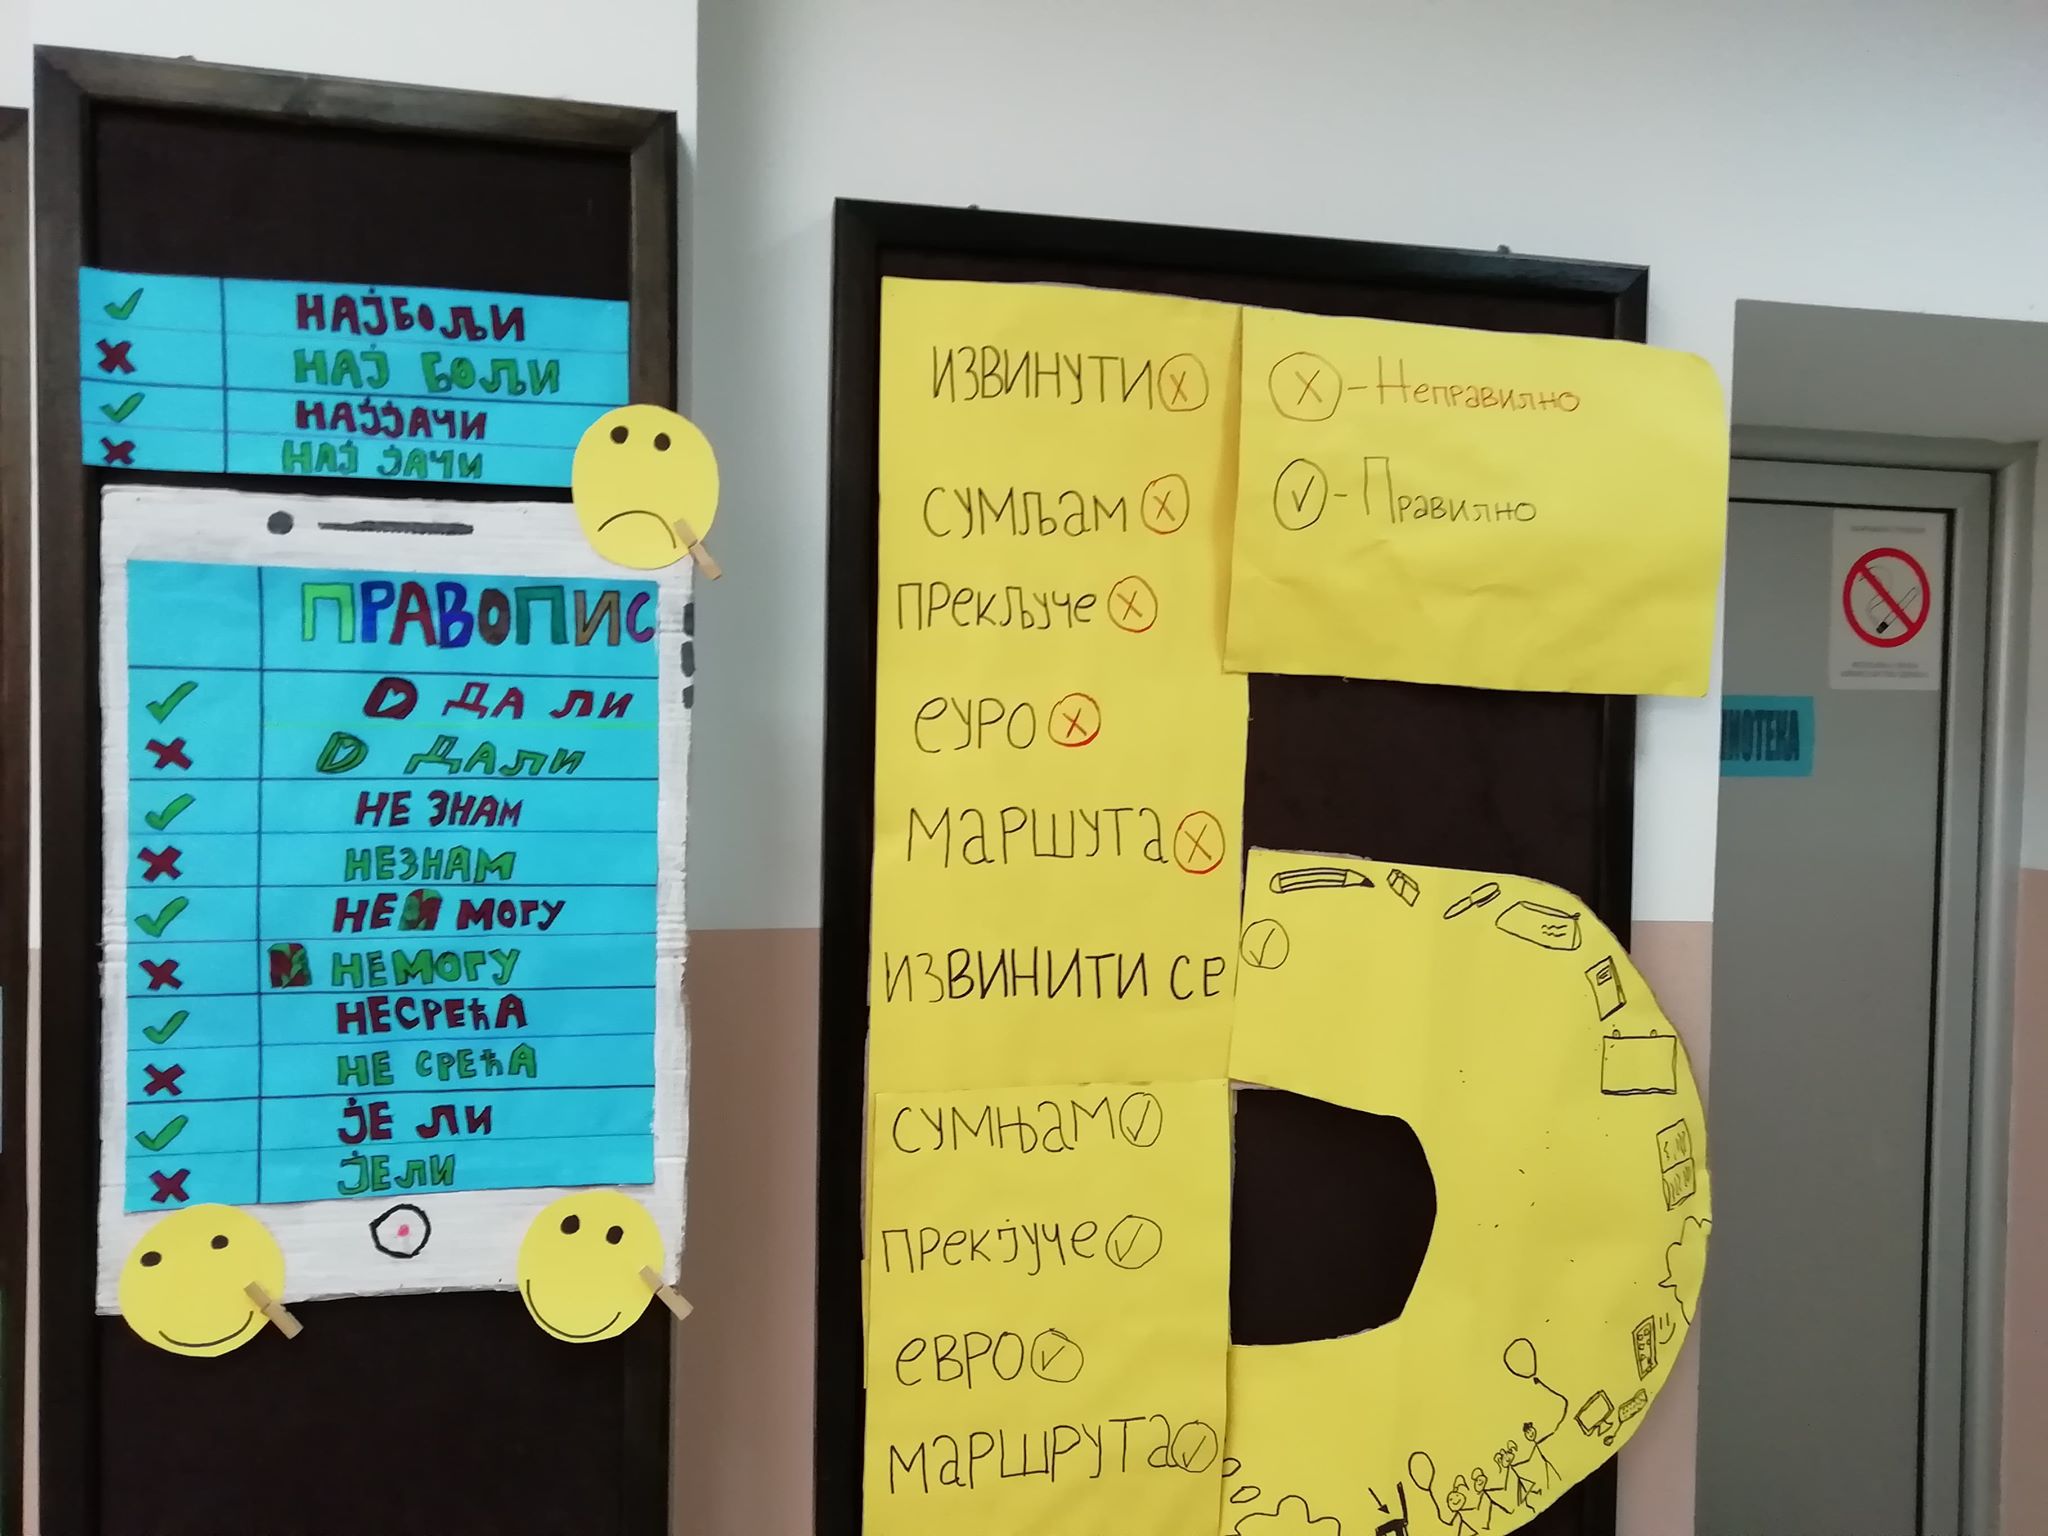 НАЈБОЉИ
НАЈ БОЉИ
НАЈЈАЧИ
НАЈ ЈАЧИ
ПРАВОПИС
ДА ЛИ
ДАЛИ
НЕ ЗНАМ
НЕЗНАМ
НЕ МОГУ
НЕМОГУ
НЕСРЕЋА
НЕ СРЕЋА
ЈЕ ЛИ
ЈЕЛИ
ИЗВИНУТИ X
СУМЉАМ X
ПРЕКЉУЧЕ X
ЕУРО X
МАРШУТА X
ИЗВИНИТИ СЕ ✓
СУМЊАМ ✓
ПРЕКЈУЧЕ ✓
ЕВРО ✓
МАРШРУТА ✓
X - Неправилно
✓ - Правилно